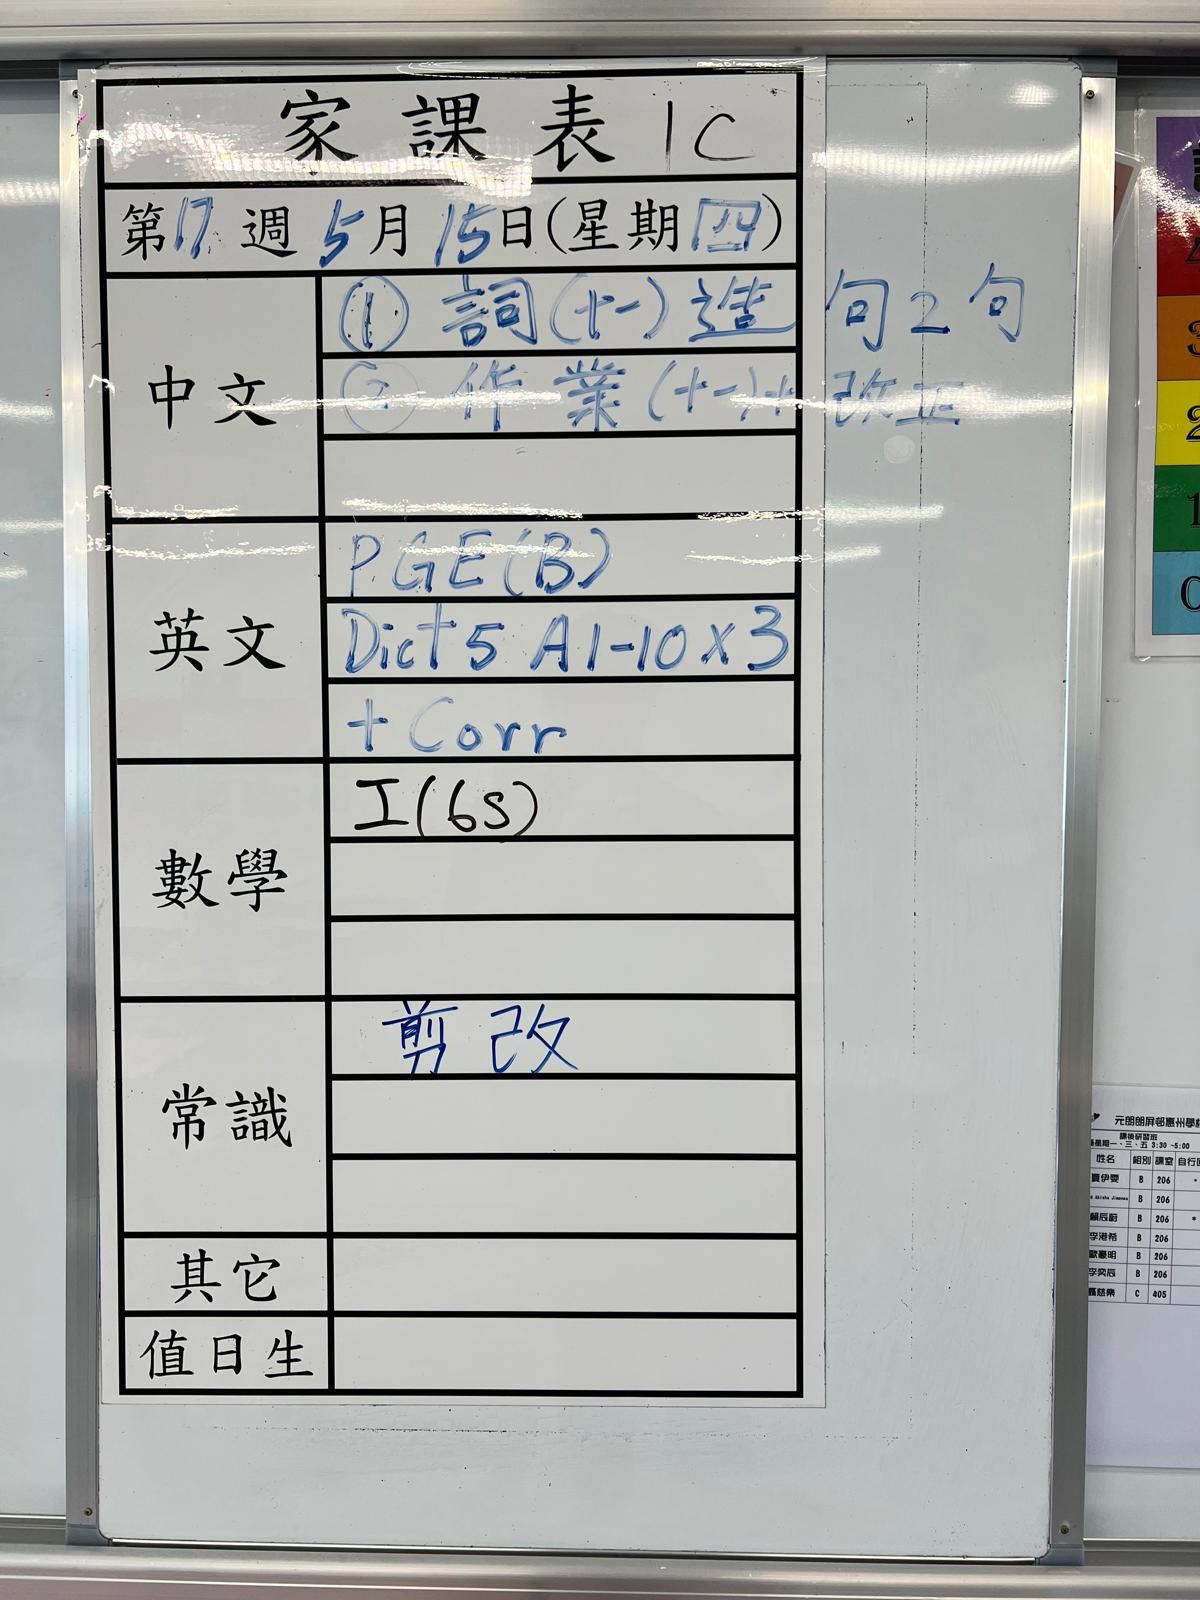 家課表 1C
第17週5月15日(星期四)
中文
① 詞(十一)造句2句
② 作業(十一)+改正
英文
PGE(B)
Dict 5 A1-10 x 3
+ Corr
數學
I(6S)
常識
剪改
其它
值日生
4
3
2
1
0
元朗朗屏邨惠州學校
課後研習班
星期一、三、五 3:30 -5:00
姓名 組別 課室 自行
B 206 *
B 206
B 206 *
李港希 B 206
歐臺明 B 206
李奕辰 B 206
C 405